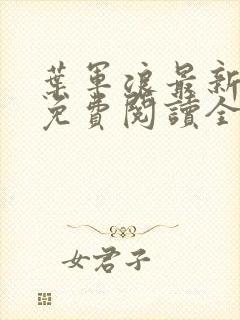 葉軍浪最新
免費閱讀全
女君子